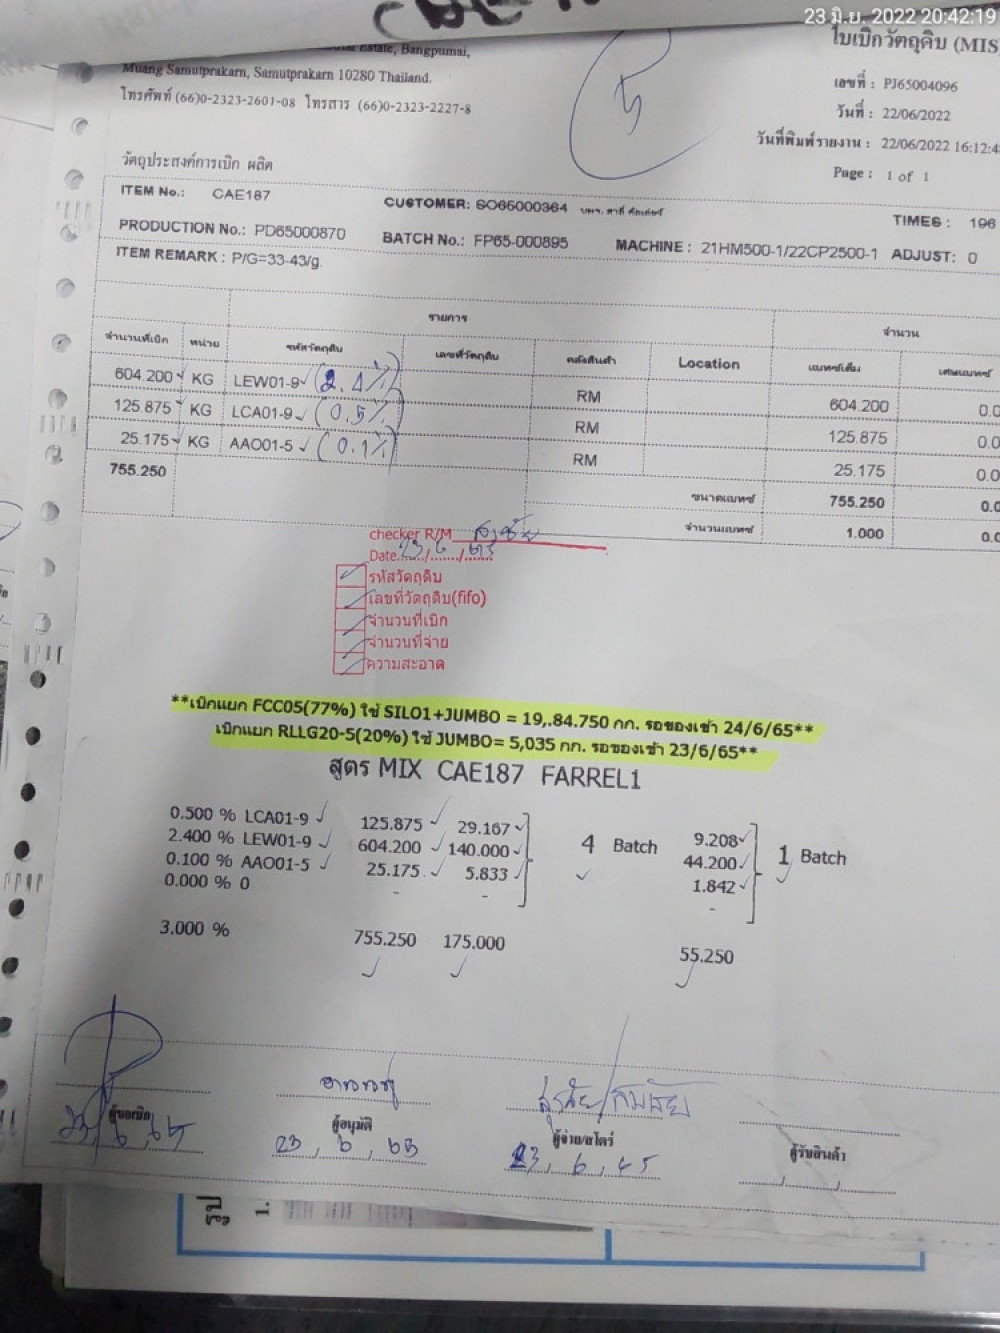 23 มิ.ย. 2022 20:42:19
ใบเบิกวัตถุดิบ (MIS
Estate, Bangpumai,
Muang Samutprakarn, Samutprakarn 10280 Thailand.
โทรศัพท์ (66)0-2323-2601-08 โทรสาร (66)0-2323-2227-8
เลขที่ : PJ65004096
วันที่ : 22/06/2022
วันที่พิมพ์รายงาน : 22/06/2022 16:12:4
Page : 1 of 1
วัตถุประสงค์การเบิก ผลิต
ITEM No.: CAE187 CUSTOMER: SO65000364 TIMES : 196
PRODUCTION No.: PD65000870 BATCH No.: FP65-000895 MACHINE : 21HM500-1/22CP2500-1 ADJUST: 0
ITEM REMARK : P/G=33-43/g.
รายการ จำนวน
จำนวนที่เบิก หน่วย รหัสวัตถุดิบ เลขที่วัตถุดิบ คลังสินค้า Location แบทซ์เต็ม เศษแบทซ์
604.200 KG LEW01-9 (2.4%) RM 604.200 0.0
125.875 KG LCA01-9 (0.5%) RM 125.875 0.0
25.175 KG AAO01-5 (0.1%) RM 25.175 0.0
755.250 ขนาดแบทซ์ 755.250 0.0
จำนวนแบทซ์ 1.000 0.0
checker R/M
Date 23/6/65
รหัสวัตถุดิบ
เลขที่วัตถุดิบ(fifo)
จำนวนที่เบิก
จำนวนที่จ่าย
ความสะอาด
**เบิกแยก FCC05(77%) ใช้ SILO1+JUMBO = 19,.84.750 กก. รอของเข้า 24/6/65**
เบิกแยก RLLG20-5(20%) ใช้ JUMBO= 5,035 กก. รอของเข้า 23/6/65**
สูตร MIX CAE187 FARREL1
0.500 % LCA01-9 125.875 29.167 9.208
2.400 % LEW01-9 604.200 140.000 4 Batch 44.200 1 Batch
0.100 % AAO01-5 25.175 5.833 1.842
0.000 % 0 - - -
3.000 % 755.250 175.000 55.250
ผู้ขอเบิก ผู้อนุมัติ ผู้จ่าย/สโตร์ ผู้รับสินค้า
23, 6, 65 23, 6, 65 23, 6, 65
รูป
1.